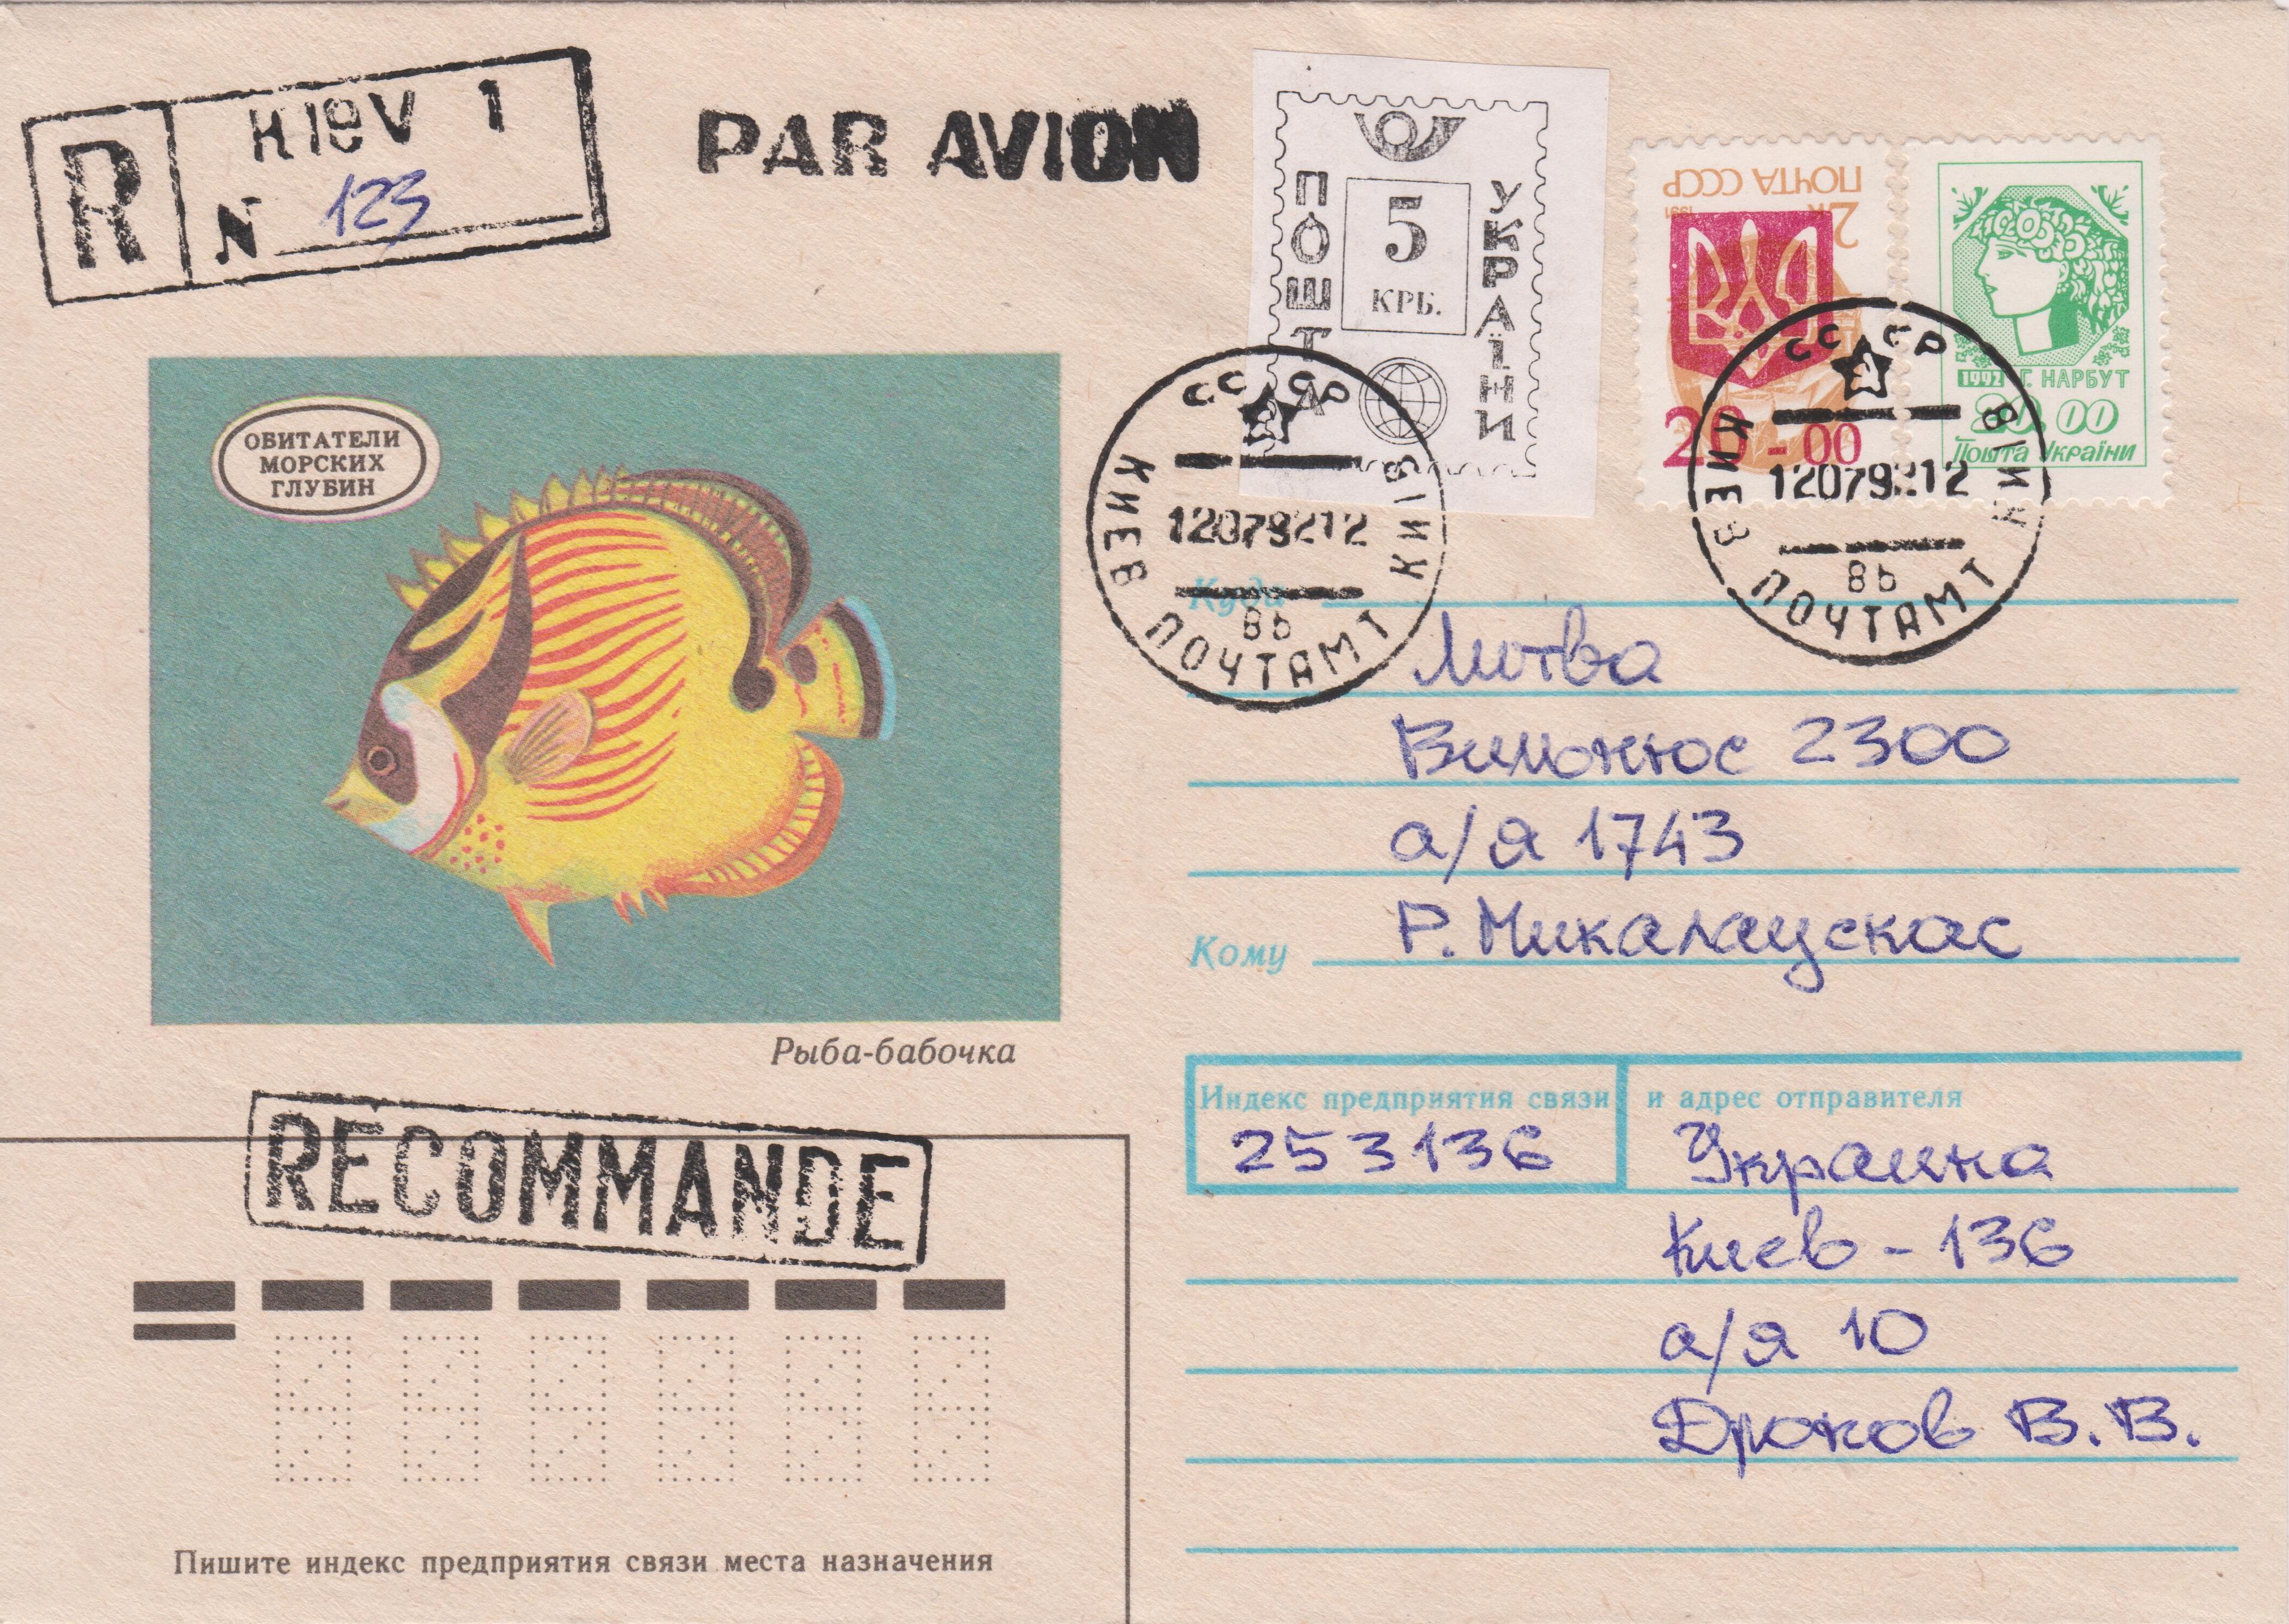 R
Kiev 1
N 123
PAR AVION
ПОШТА
5
КРБ.
УКРАЇНИ
ПОЧТА СССР
2к
1991
20-00
1992 Г. НАРБУТ
20.00
Пошта України
СССР
КИЕВ ПОЧТАМТ КИЇВ
12079212
8Б
СССР
КИЕВ ПОЧТАМТ КИЇВ
12079212
8Б
ОБИТАТЕЛИ
МОРСКИХ
ГЛУБИН
Рыба-бабочка
RECOMMANDE
Куда
Литва
Вильнюс 2300
а/я 1743
Кому Р. Микалаускас
Индекс предприятия связи и адрес отправителя
253136 Украина
Киев - 136
а/я 10
Дроков В.В.
Пишите индекс предприятия связи места назначения